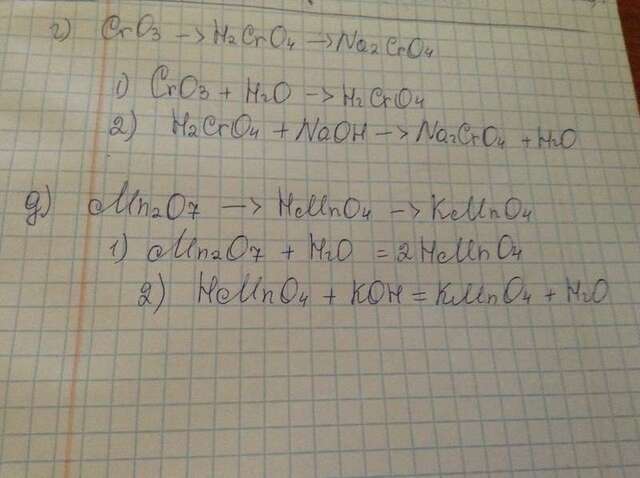 г) CrO3 → H2CrO4 → Na2CrO4
1) CrO3 + H2O → H2CrO4
2) H2CrO4 + NaOH → Na2CrO4 + H2O
д) Mn2O7 → HMnO4 → KMnO4
1) Mn2O7 + H2O = 2HMnO4
2) HMnO4 + KOH = KMnO4 + H2O